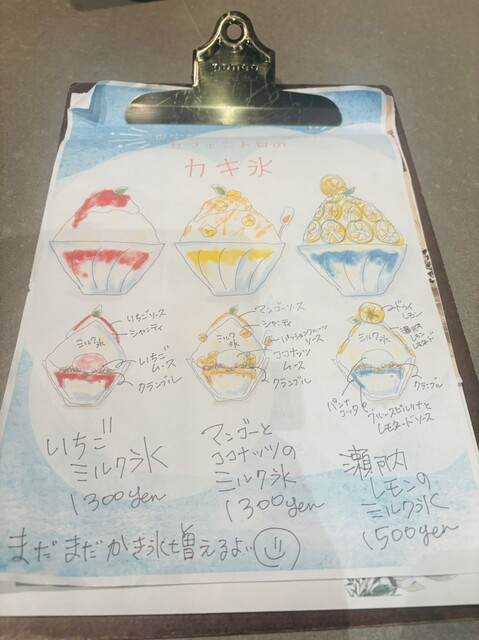 カキ氷
いちごソース
シャンティ
ミルク氷
いちご
ムース
クランブル
マンゴーソース
シャンティ
ミルク
氷
パッションフルーツ
ソース
ココナッツ
ムース
クランブル
ドライ
レモン
ミルク氷
クランブル
パンナ
コッタ
レモネードソース
いちご
ミルク氷
1300yen
マンゴーと
ココナッツの
ミルク氷
1300yen
瀬戸内
レモンの
ミルク氷
1500yen
まだまだかき氷も増えるよ